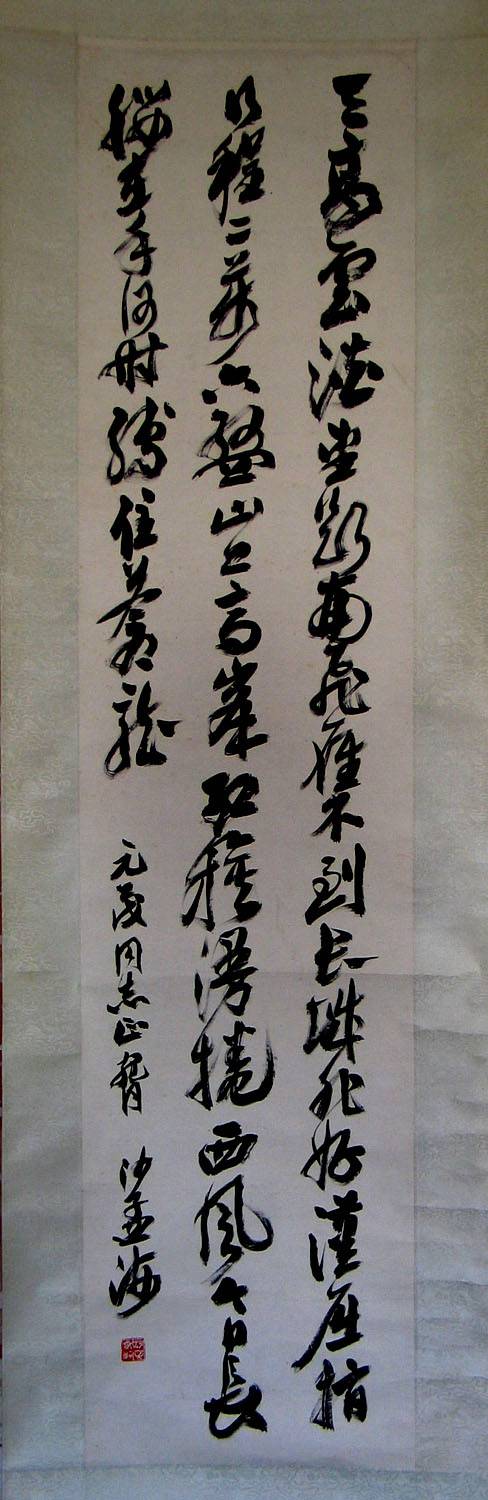 天高雲淡望斷南飛雁不到長城非好漢屈指
行程二萬六盤山上高峯紅旗漫捲西風今日長
纓在手何時縛住蒼龍
元同志正
沙孟海